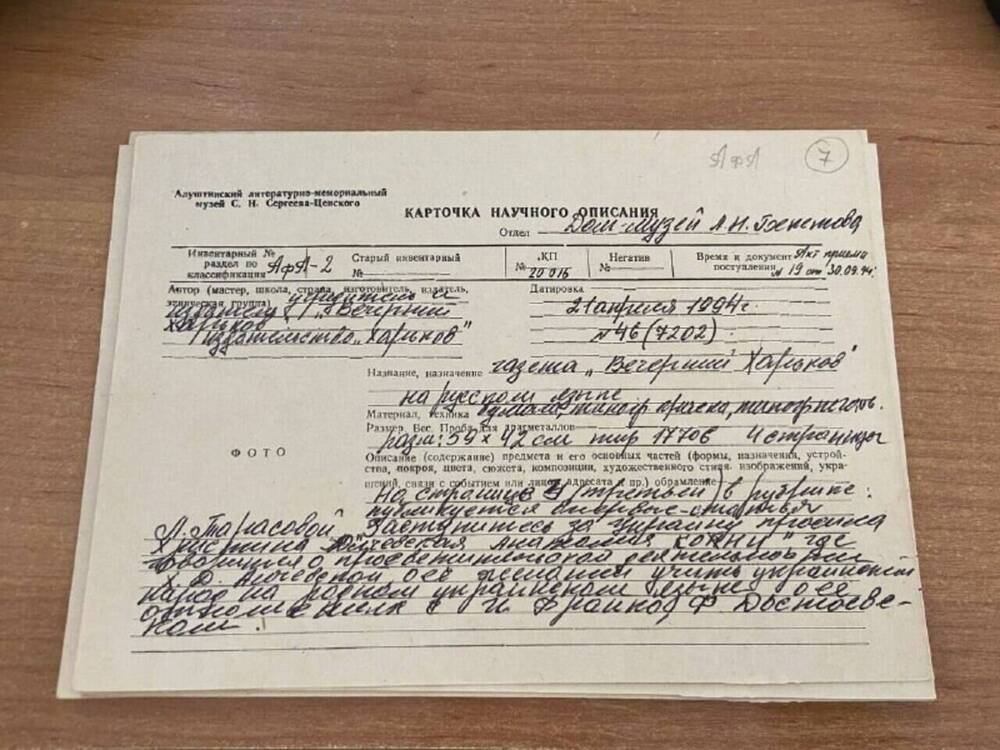 АфА 7
Алуштинский литературно-мемориальный
музей С. Н. Сергеева-Ценского
КАРТОЧКА НАУЧНОГО ОПИСАНИЯ
Отдел Дом-музей А.Н. Бекетова
Инвентарный №
раздел по
классификации АфА-2
Старый инвентарный
№
КП
№ 20016
Негатив
№
Время и документ
поступления
Акт приема
№ 19 от 30.09.94г.
Автор (мастер, школа, страна, изготовитель, издатель,
этническая группа) учредитель и
издатель "Вечерний
Харьков"
Издательство "Харьков"
Датировка
21 апреля 1994 г.
№ 46 (7202)
Название, назначение газета „Вечерний Харьков"
на русском языке
Материал, техника бумага, типогр краска, типогр печать.
Размер. Вес. Проба для драгметаллов
разм: 59 х 42 см тир 17706 4 страницы
ФОТО
Описание (содержание) предмета и его основных частей (формы, назначения, устрой-
ства, покроя, цвета, сюжета, композиции, художественного стиля, изображений, укра-
шений, связи с событием или лицом, адресата и пр.) обрамление
На странице 3 (третьей) в рубрике:
публикуется впервые - статья
Л. Тарасовой „Заступитесь за Украину просила
Христина Алчевская Анатолия Кони" где
говорится о просветительской деятельности
Х. Д. Алчевской о её желании учить украинский
народ на родном украинском языке о её
отношениях с И Франко, Ф Достоевс-
ком.